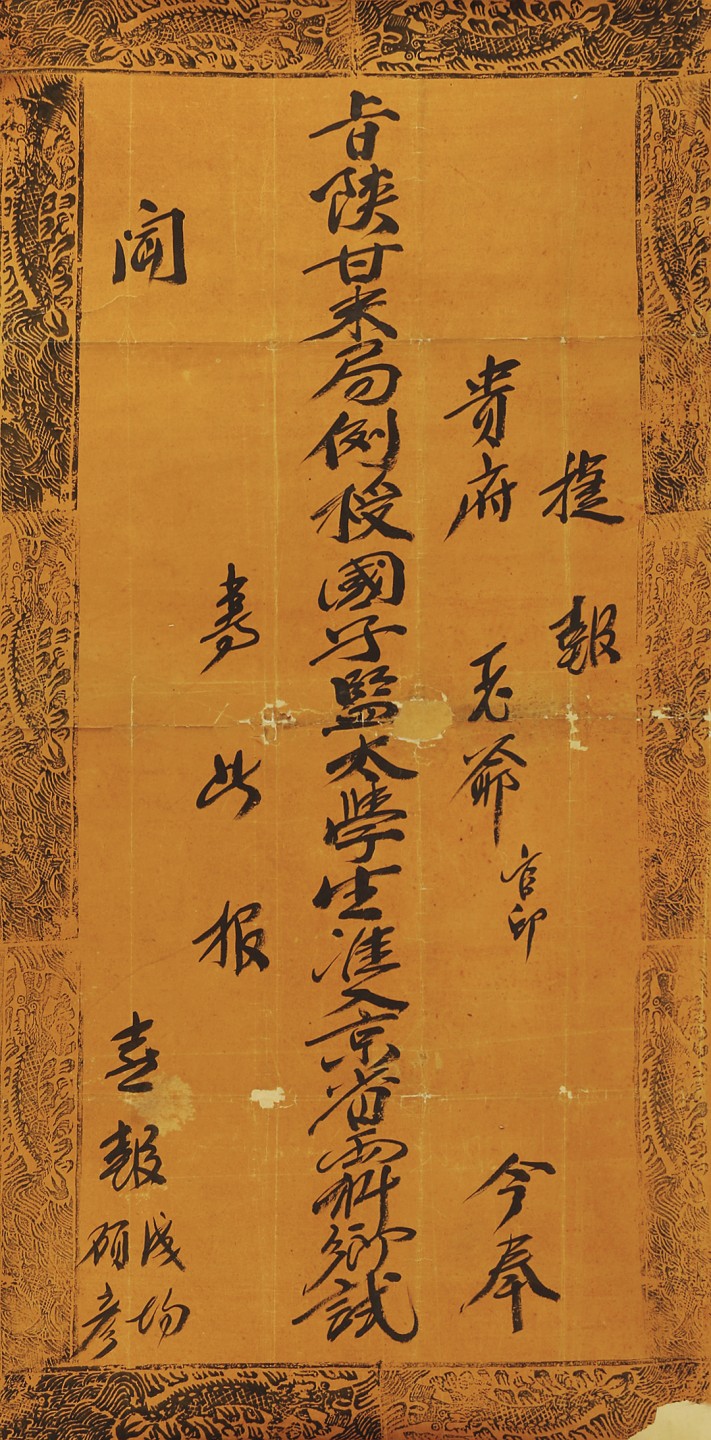 捷報
貴府老爺官印今奉
旨陝甘米局例授國子監太學生准入京省兩科鄉試
專此报
聞
喜報成均碩彥